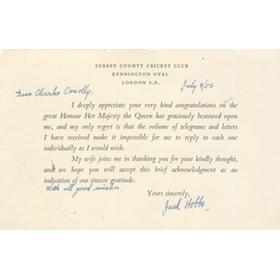 SURREY COUNTY CRICKET CLUB
KENNINGTON OVAL
LONDON S.E.
July 8/53
Dear Charles Conolly.
I deeply appreciate your very kind congratulations on the
great Honour Her Majesty the Queen has graciously bestowed upon
me, and my only regret is that the volume of telegrams and letters
I have received make it impossible for me to reply to each one
individually as I would wish.
My wife joins me in thanking you for your kindly thought,
and we hope you will accept this brief acknowledgment as an
indication of our sincere gratitude.
With all good wishes
Yours sincerely,
Jack Hobbs.